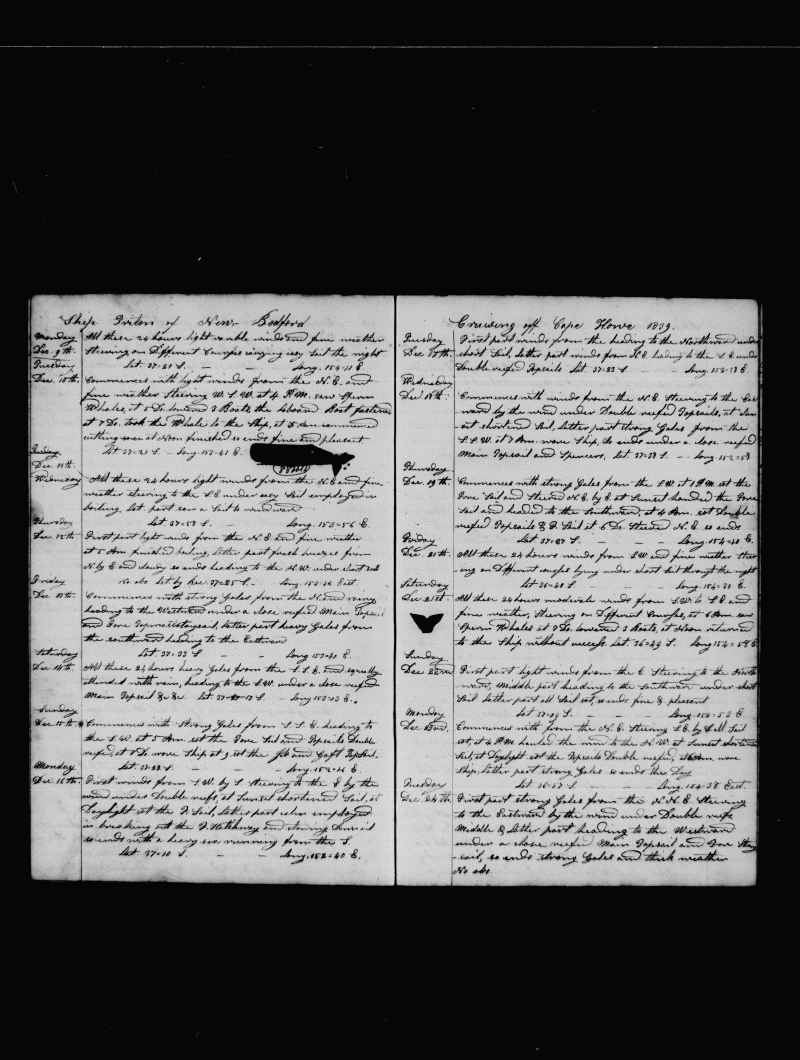 Ship Triton of New Bedford
Monday All these 24 hours light variable winds and fine weather
Dec. 9th. Steering on Different Courses carrying easy Sail the night
Tuesday Lat 37=21 S. — — Long. 154=11 E.
Dec. 10th. Commences with light winds from the N.E. and
fine weather Steering W.S.W. at 4 P.M. saw Sperm
Whales, at 5 Do. lowered 3 Boats the Boat fastened
at 7 Do. took the Whale to the Ship, at 5 Am. commenced
cutting at Noon finished so ends fine and pleasant
Lat 37=21 S. — Long. 153=41 E.
Dec 11th.
Wednesday All these 24 hours light winds from the N.E. and fine
weather steering to the S.E under easy Sail employed in
boiling. Lat. part saw a Sail to windward
Thursday Lat 37=53 S. — Long. 153=56 E.
Dec. 12th. First part light winds from the N.E. and fine weather
at 5 Am finished boiling, latter part fresh breezes from
N by E and cloudy so ends heading to the N.W. under short Sail
Friday No obs Lat by Rec. 37=25 S. — Long. 153=36 East
Dec. 13th. Commences with strong Gales from the N. and rainy
heading to the Westward under a close reefed Main Topsail
and Fore Topmast Staysail, latter part heavy Gales from
the southward heading to the Eastward
Saturday Lat 37=33 S — Long 153=40 E.
Dec. 14th. All these 24 hours heavy Gales from the S.S.E. and squally
attended with rain, heading to the S.W. under a close reefed
Main Topsail &c &c. Lat 37=17 S — Long 153=13 E.
Sunday
Dec. 15th. Commences with Strong Gales from S.S.E. heading to
the S.W. at 5 Am. set the Fore Sail and Topsails Double
reefed, at 8 Do wove Ship at 9 set the Jib and Gaff Topsail.
Monday Lat. 37=28 S. — — Long. 152=26 E.
Dec. 16th. First winds from S.W by S steering to the E by the
wind under Double reefs, at Sunset shortened Sail, at
Daylight set the F. Sail, latter part crew employed
in breaking out the F. Hatchway and stowing down oil
so ends with a heavy sea running from the S.
Lat. 37=10 S. — — Long. 152=40 E.
Cruising off Cape Howe 1839.
Tuesday First part winds from the heading to the Northward under
Dec 17th. short Sail, latter part winds from N.E heading to the S.E under
Double reefed Topsails Lat 37=33 S — Long. 153=17 E.
Wednesday
Dec 18th. Commences with winds from the N.E. Steering to the
by the wind under Double reefed Topsails, at Sun
set shortened Sail, latter part strong Gales from the
S.S.W. at 7 Am. wore Ship, so ends under a close reefed
Main Topsail and Spencers. Lat 37=39 S. — Long 152=58
Thursday
Dec. 19th. Commences with strong Gales from the S.W. at 1 P.M. set the
Fore Sail and Steered N.E. by E at Sunset handed the Fore
Sail and headed to the Southward, at 4 Am. set Double
reefed Topsails & F Sail at 6 Do. Steered N.E. so ends
Friday Lat 37=27 S — Long. 154=40 E.
Dec. 20th. All these 24 hours winds from S.W and fine weather Steer
ing on Different courses lying under short Sail through the night
Saturday Lat 36=40 S — Long 154=30 E.
Dec 21st. All these 24 hours moderate winds from S.W to S.E and
fine weather, Steering on Different Courses, at 6 Am. saw
Sperm Whales at 7 Do. lowered 3 Boats, at Noon returned
to the Ship without success. Lat. 36=49 S. Long 154=58 E
Sunday
Dec 22nd. First part light winds from the E Steering to the North
ward, Middle part heading to the Southward under short
Sail latter part all Sail set, so ends fine & pleasant
Monday Lat 37=19 S. — — Long. 154=52 E
Dec 23rd. Commences with from the N.E. Steering S.E. by S all Sail
set, at 4 P.M. hauled the wind to the N.W. at Sunset shortened
Sail, at Daylight set the Topsails Double reefed, Am. wore
Ship, latter part strong Gales so ends the Day
Tuesday Lat 36=57 S — Long. 154=38 East.
Dec. 24th. First part strong Gales from the N.N.E. Steering
to the Eastward by the wind under Double reefs,
Middle & latter part heading to the Westward
under a close reefed Main Topsail and Fore Stay
sail, so ends strong Gales and thick weather
No obs.